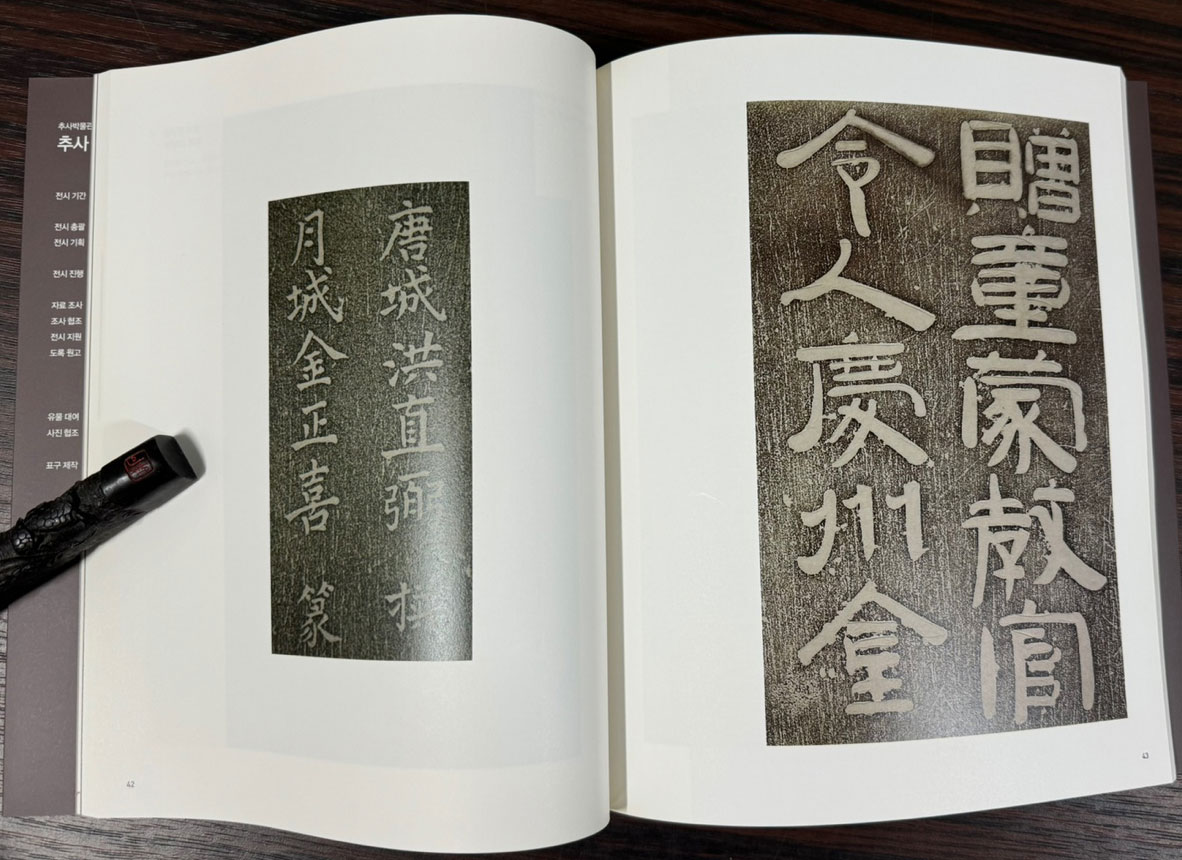 추사박물관
추사
전시 기간
전시 총괄
전시 기획
전시 진행
자료 조사
조사 협조
전시 지원
도록 원고
유물 대여
사진 협조
표구 제작
唐城洪直弼 撰
月城金正喜 篆
42
贈童蒙敎官
令人慶州金
43